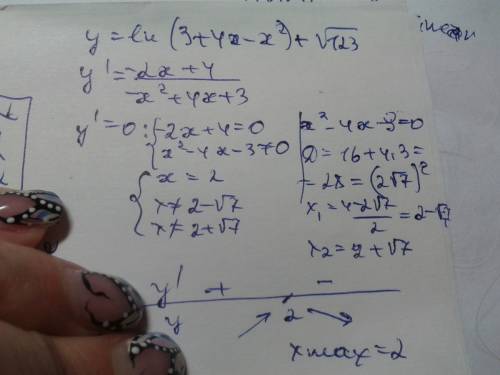 y = ln (3+4x-x²) + √123
y' = -2x+4 / -x²+4x+3
y'=0: { -2x+4=0
{ x²-4x-3≠0
{ x = 2
x ≠ 2-√7
x ≠ 2+√7
x²-4x-3=0
D = 16+4·3=
= 28 = (2√7)²
x₁ = 4-2√7 / 2 = 2-√7
x₂ = 2+√7
y' + -
y 2
x max = 2